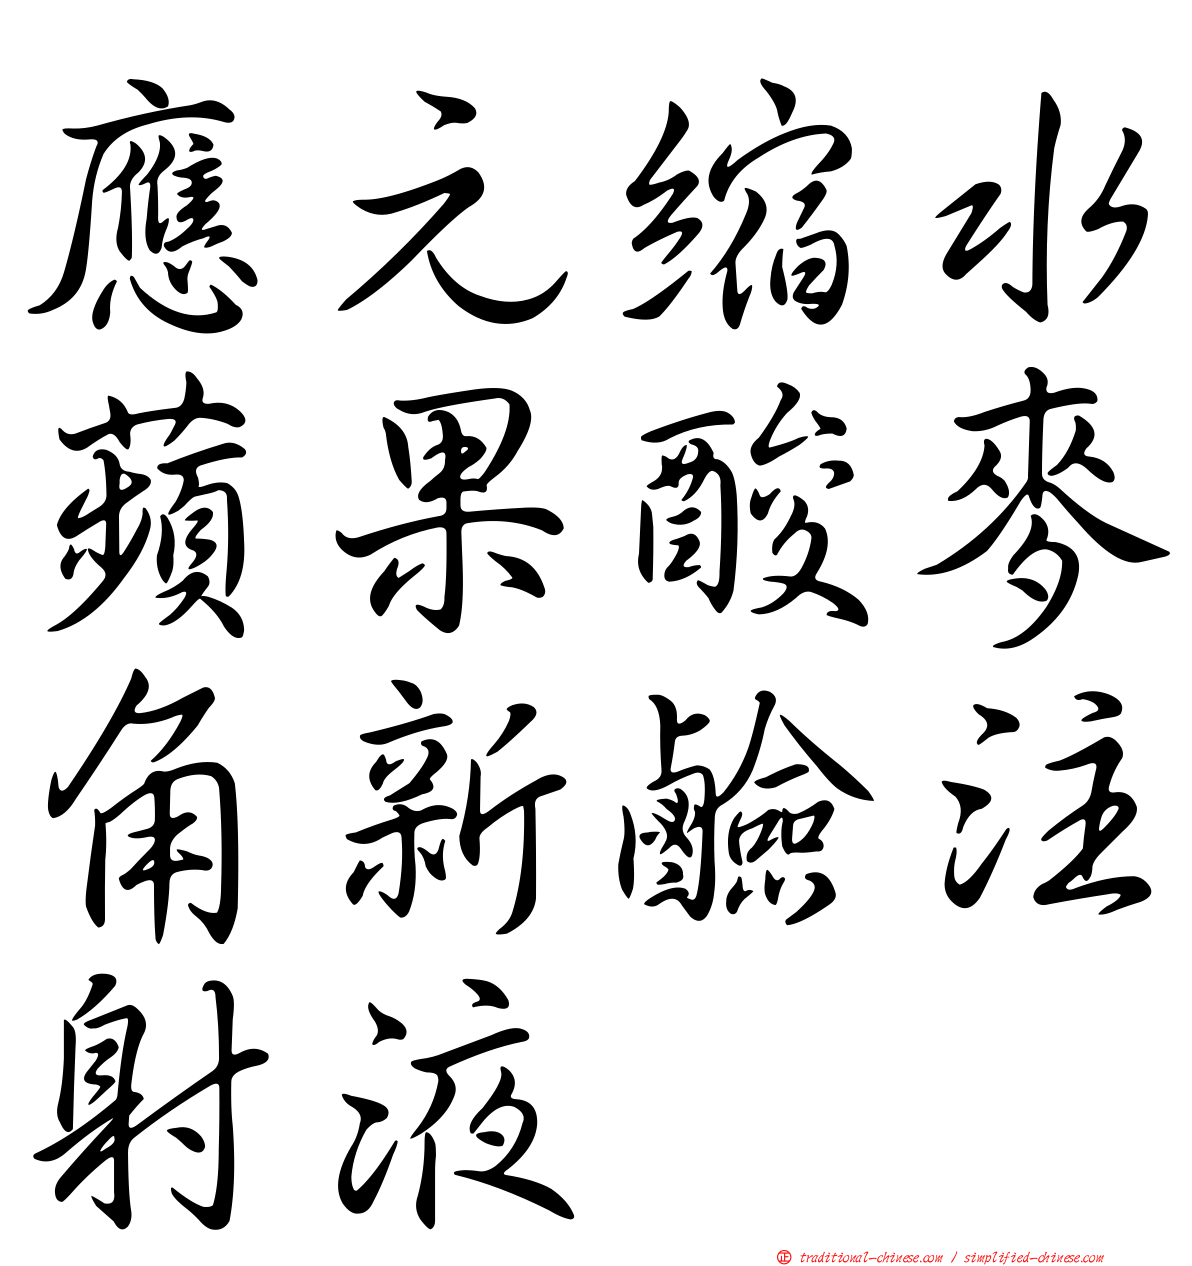 應元縮水
蘋果酸麥
角新鹼注
射液
正 traditional-chinese.com / simplified-chinese.com